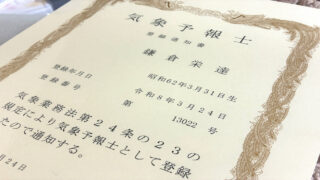 気象予報士
登録通知書
鎌倉栄達
昭和62年3月31日生
登録年月日 令和8年3月24日
登録番号 第 13022 号
気象業務法第24条の23の
規定により気象予報士として登録
たので通知する。
月24日